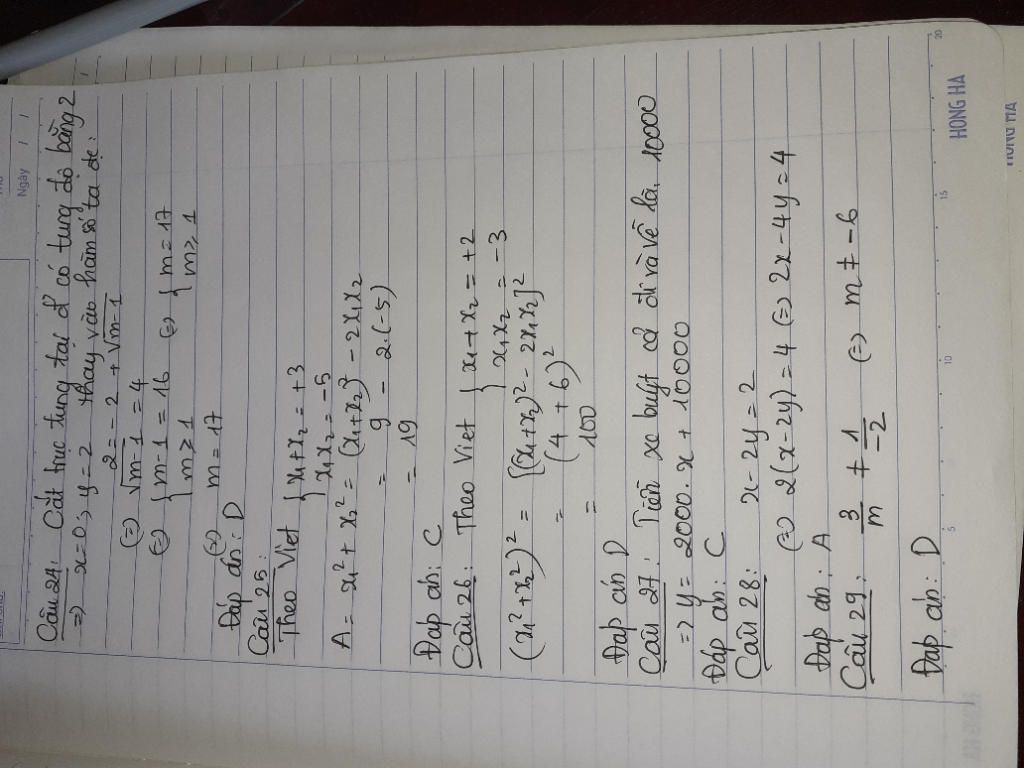 Ngày / /
Câu 24: Cắt trục tung tại đ' có tung độ bằng 2
=> x = 0; y = 2 thay vào hàm số ta đc:
2 = -2 + √m-1
(=) √m-1 = 4
(=) { m-1 = 16 (=) { m = 17
m ≥ 1 m ≥ 1
(=) m = 17
Đáp án: D
Câu 25:
Theo Viet { x₁ + x₂ = +3
x₁x₂ = -5
A = x₁² + x₂² = (x₁+x₂)² - 2x₁x₂
= 9 - 2.(-5)
= 19
Đáp án: C
Câu 26: Theo Viet { x₁ + x₂ = +2
x₁x₂ = -3
(x₁² + x₂²)² = [(x₁+x₂)² - 2x₁x₂]²
= (4 + 6)²
= 100
Đáp án D
Câu 27: Tiền xe buýt cả đi và về là 10000
=> y = 2000.x + 10000
Đáp án: C
Câu 28: x - 2y = 2
(=) 2(x-2y) = 4 (=) 2x - 4y = 4
Đáp án: A
Câu 29: 3/m ≠ 1/-2 (=) m ≠ -6
Đáp án: D
5 10 15 20
HONG HA